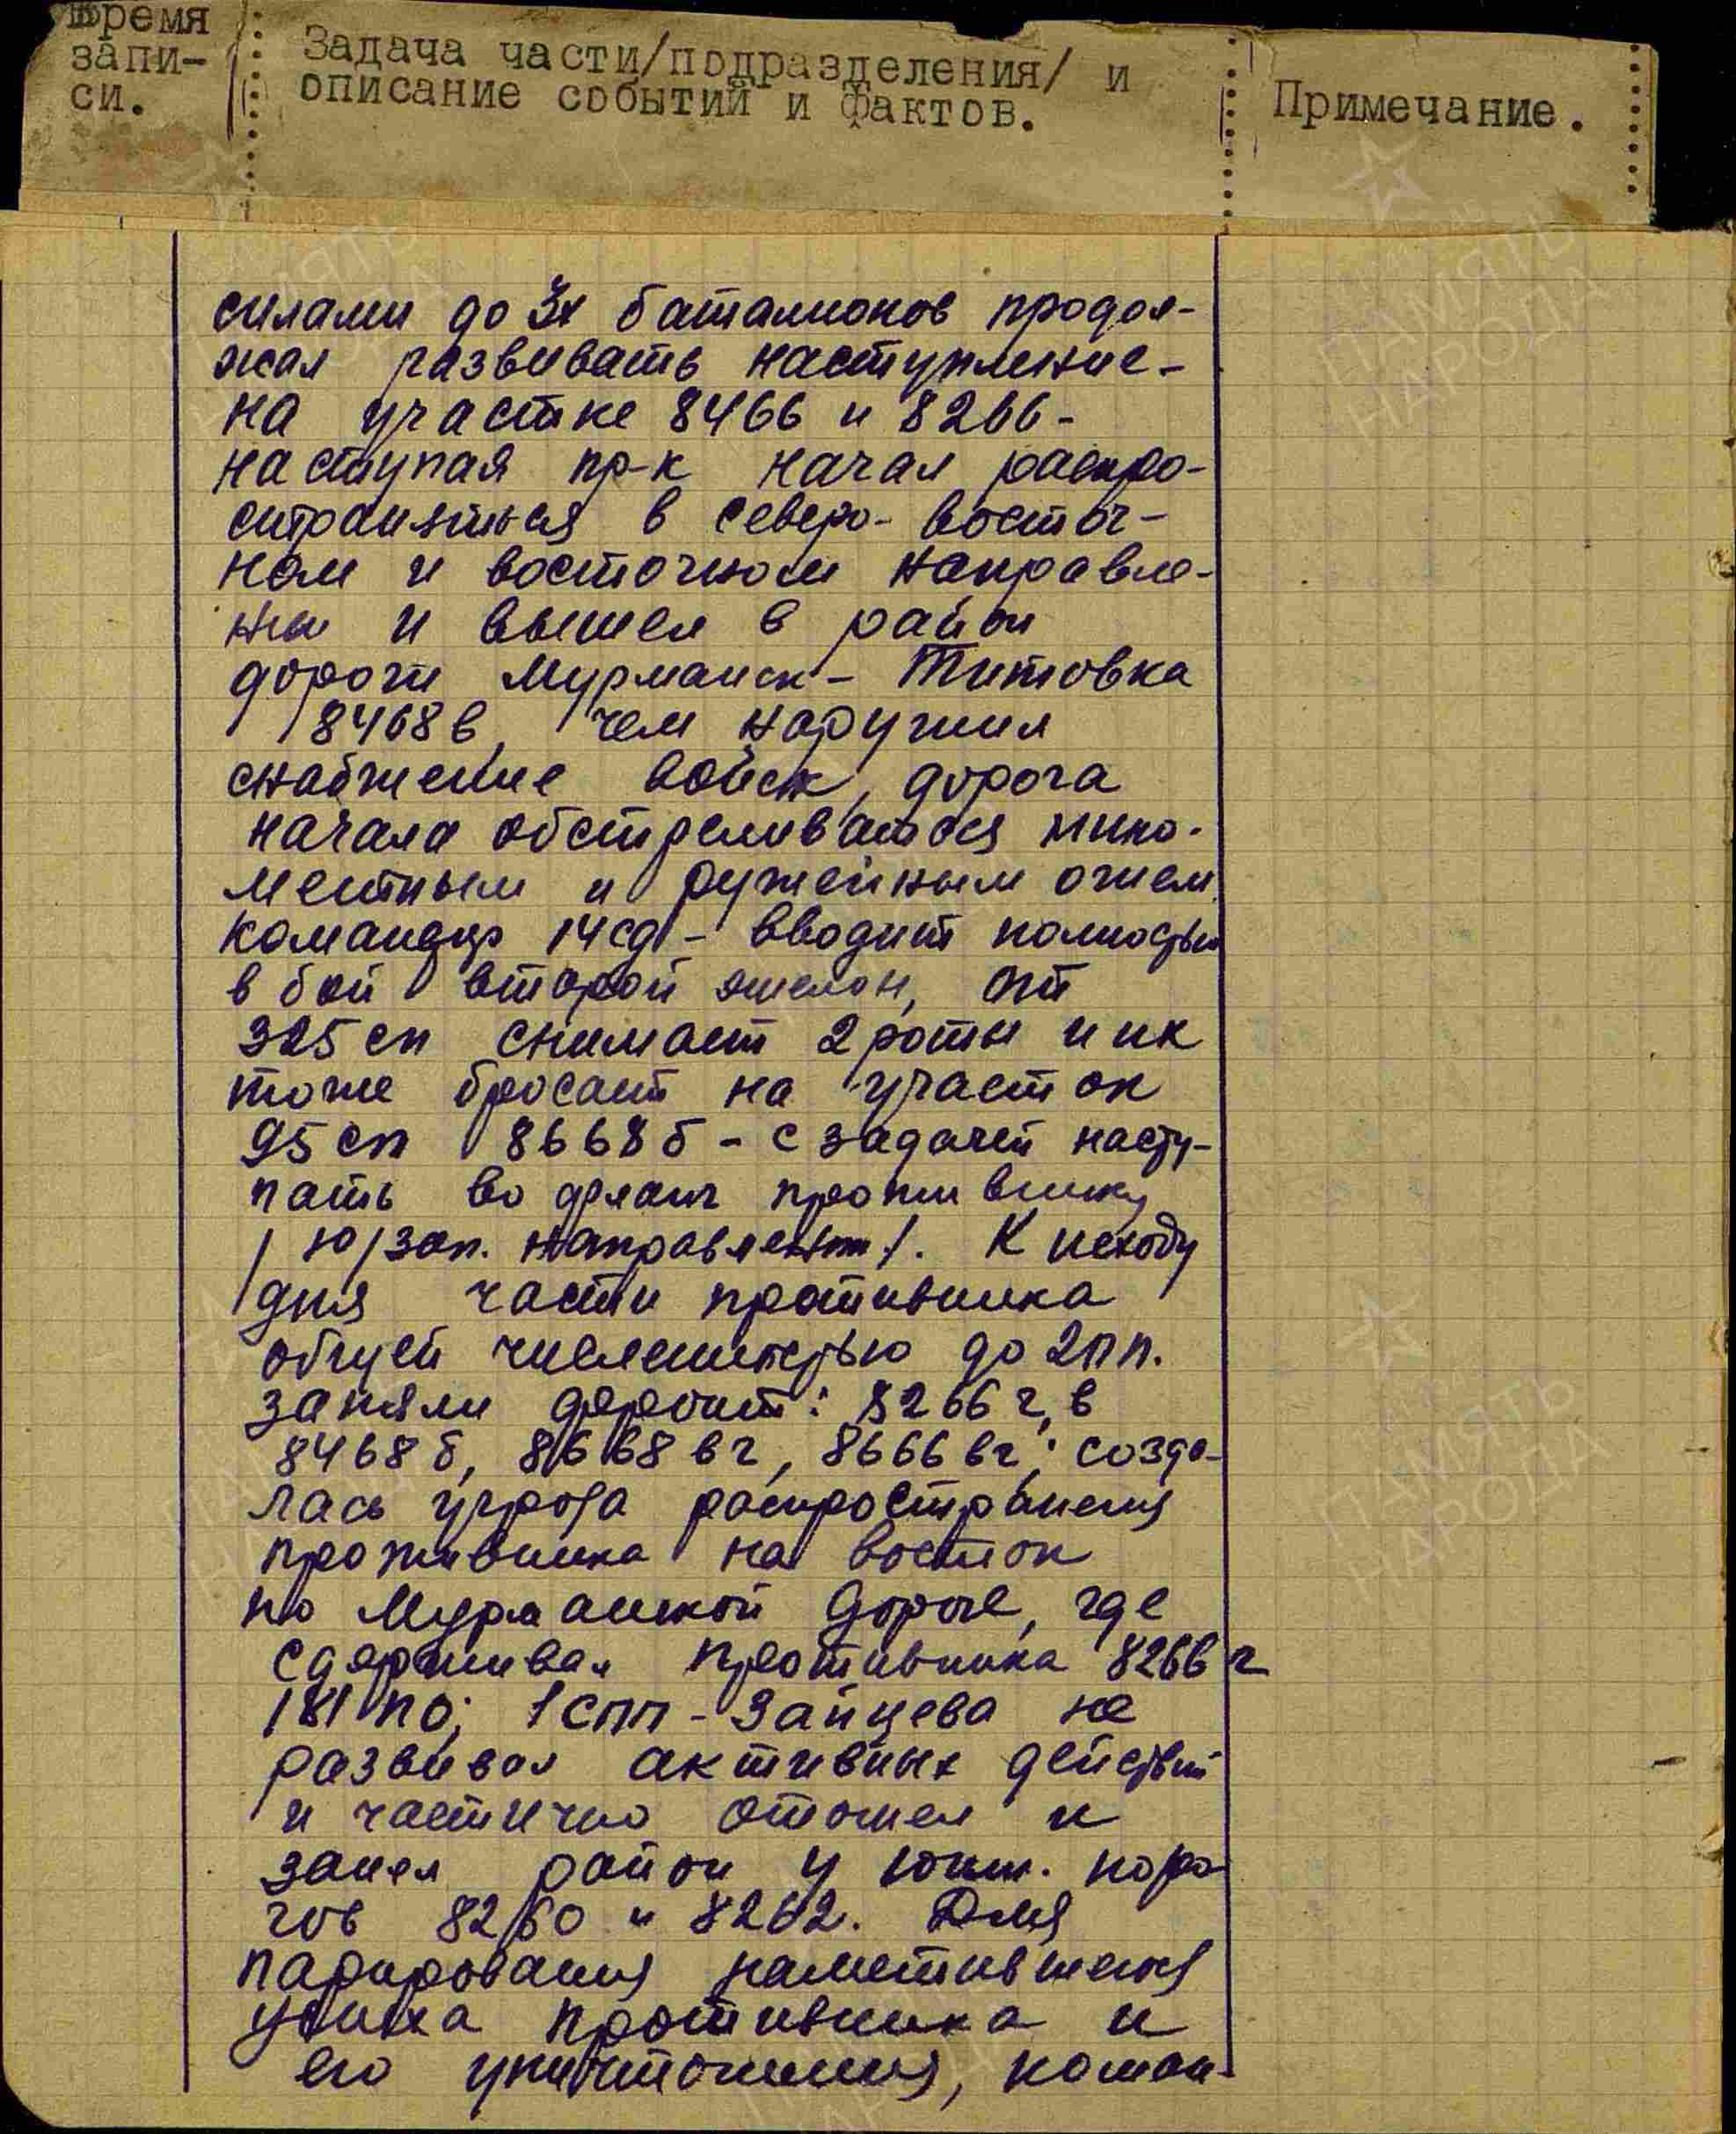 Время
запи-
си.
Задача части/подразделения/ и
описание событий и фактов.
Примечание.
силами до 3х батальонов продол-
жал развивать наступление-
на участке 8466 и 8266-
наступая пр-к начал распро-
страняться в северо-восточ-
ном и восточном направле-
нии и вышел в район
дороги Мурманск - Титовка
/8468в, чем нарушил
снабжение войск, дорога
начала обстреливаться мино-
метным и ружейным огнем
командир 14сд - вводит полностью
в бой второй эшелон, от
325 сп снимает 2 роты и их
тоже бросает на участок
95 сп /8668б - с задачей насту-
пать во фланг противнику
/ю/зап. направлении/. К исходу
дня части противника
общей численностью до 2пп.
заняли : 8266г,в
8468б, 8668вг, 8666вг; созда-
лась угроза распространения
противника на восток
по Мурманской дороге, где
сдерживал противника 8266г
181по; 1спп - Зайцева не
развивал активных действий
и частично отошел и
занял район у южн. поро-
гов 8260 и 8262. Для
парирования наметившегося
успеха противника и
его уничтожения, коман-
ПАМЯТЬ
НАРОДА
ПАМЯТЬ
НАРОДА